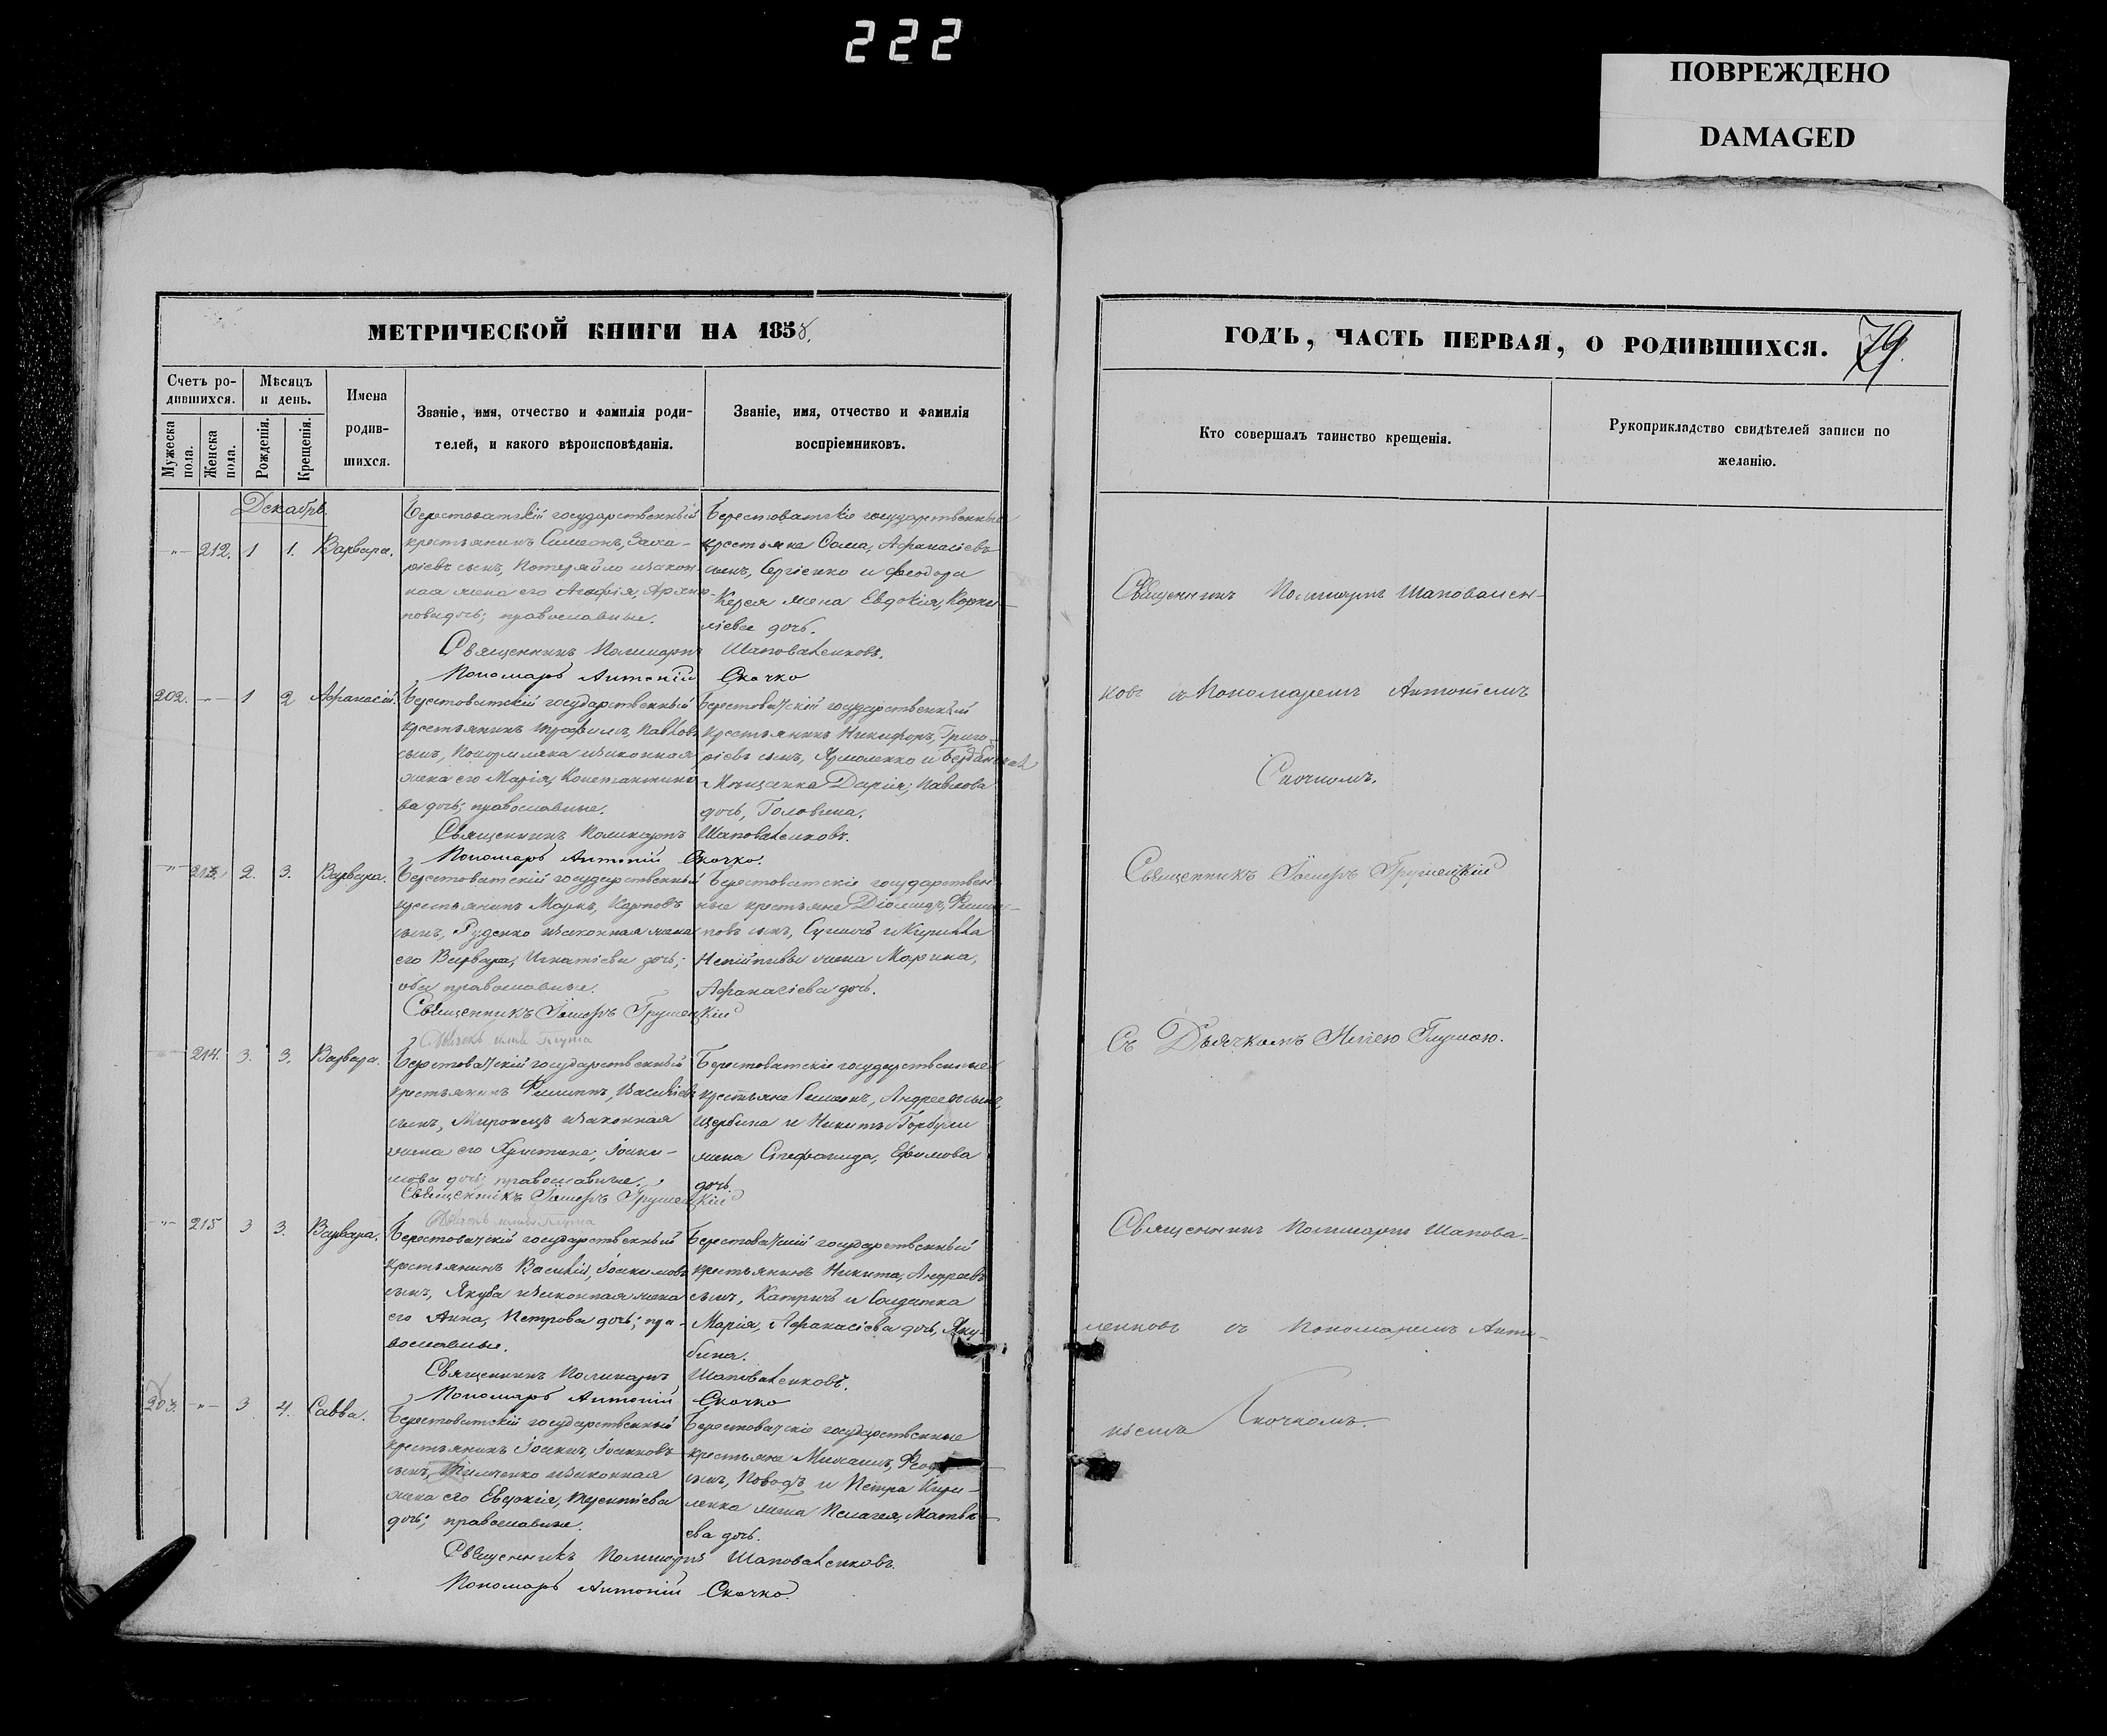 222
ПОВРЕЖДЕНО
DAMAGED
МЕТРИЧЕСКОЙ КНИГИ НА 1858.
Счетъ ро-
дившихся.
Мѣсяцъ
и день.
Имена
родив-
шихся.
Мужеска
пола.
Женска
пола.
Рожденія.
Крещенія.
Званіе, имя, отчество и фамилія роди-
телей, и какого вѣроисповѣданія.
Званіе, имя, отчество и фамилія
воспріемниковъ.
Декабрь.
-"- 212. 1 1. Варвара.
Берестоватскій государственный
крестьянинъ Симеонъ, Заха-
ріевъ сынъ, Потеряйло и закон-
ная жена его Агафія,
дочь; православные.
Берестоватскіе государственные
крестьяне Сома, Афанасіевъ
сынъ, Сергіенко и Феодора
жена Евдокія, Корни-
ліева дочь.
Священникъ Поликарпъ Шаповаленковъ.
Пономарь Антоній Скочко
202. -"- 1 2 Афанасій.
Берестоватскій государственный
крестьянинъ Трофимъ, Павловъ
сынъ, и законная
жена его Марія, Константино-
ва дочь; православные.
Берестоватскій государственный
крестьянинъ Никифоръ, Григо-
ріевъ сынъ, Ярмоленко и Бердянская
Мѣщанка Дарія, Павлова
дочь, Головина.
Священникъ Поликарпъ Шаповаленковъ.
Пономарь Антоній Скочко.
-"- 213. 2. 3. Варвара.
Берестоватскій государственный
крестьянинъ Маркъ, Карповъ
сынъ, Руденко и законная жена
его Варвара, Игнатіева дочь;
оба православные.
Берестоватскіе государствен-
ные крестьяне Діомидъ, Филип-
повъ сынъ, и Кирилла
Непійпивы жена Марина,
Афанасіева дочь.
Священникъ Іосифъ Грушецкій
214. 3. 3. Варвара.
Берестоватскій государственный
крестьянинъ Филиппъ, Васильевъ
сынъ, Миронецъ и законная
жена его Христина, Іоаки-
мова дочь; православные.
Берестоватскіе государственные
крестьяне Симеонъ, Андреевъ сынъ,
Щербина и Никиты Горбули
жена Стефанида, Ефимова
дочь.
Священникъ Іосифъ Грушецкій
-"- 215 3 3. Варвара.
Берестоватскій государственный
крестьянинъ Василій, Іоакимовъ
сынъ, Якуба и законная жена
его Анна, Петрова дочь; пра-
вославные.
Берестоватскій государственный
крестьянинъ Никита, Андреевъ
сынъ, Катричъ и Солдатка
Марія, Афанасіева дочь, Яку-
бина.
Священникъ Поликарпъ Шаповаленковъ.
Пономарь Антоній Скочко
203. -"- 3 4. Савва.
Берестоватскій государственный
крестьянинъ
сынъ, и законная
жена его Евдокія, Терентіева
дочь; православные.
Берестоватскіе государственные
крестьяне Михаилъ,
сынъ, и Петра Кири-
ленка жена Пелагея, Матвѣ-
ева дочь.
Священникъ Поликарпъ Шаповаленковъ.
Пономарь Антоній Скочко.
ГОДЪ, ЧАСТЬ ПЕРВАЯ, О РОДИВШИХСЯ. 79.
Кто совершалъ таинство крещенія.
Рукоприкладство свидѣтелей записи по
желанію.
Священникъ Поликарпъ Шаповален-
ковъ съ Пономаремъ Антоніемъ
Скочкомъ.
Священникъ Іосифъ Грушецкій
Съ Дьячкомъ Иліею Глушою.
Священникъ Поликарпъ Шапова-
ленковъ съ Пономаремъ Анто-
ніемъ Скочкомъ.